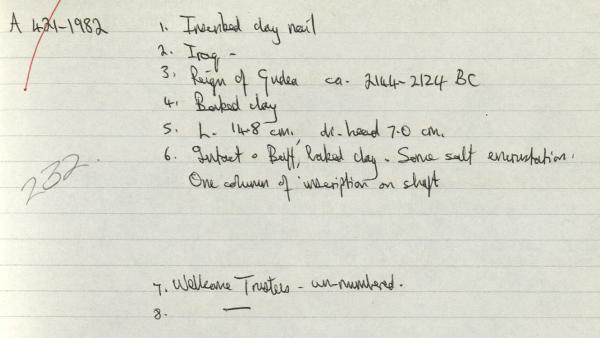 A 421-1982
1. Inscribed clay nail
2. Iraq -
3. Reign of Gudea ca. 2144-2124 BC
4. Baked clay
5. L. 14.8 cm, di. head 7.0 cm.
6. Intact. Buff, baked clay. Some salt encrustation.
One column of inscription on shaft
232.
7. Wellcome Trustees - un-numbered.
8. —